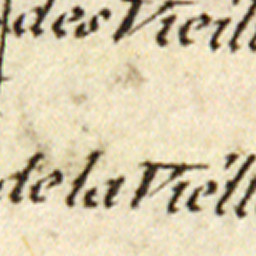 des Vieill
de la Viéll